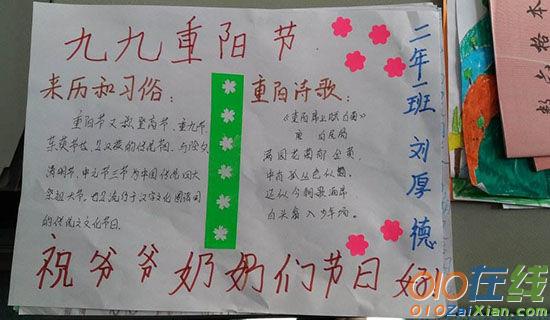 九九重阳节
来历和习俗：
重阳节又叫登高节、重九节、
茱萸节也是汉族的传统节日与除夕
清明节、中元节三节为中国传统四大
祭祖大节。也是流行于汉字文化圈诸国
的传统文化节日。
重阳诗歌：
《重阳席上赋白菊》
唐 白居易
满园花菊郁金黄，
中有孤丛色似霜。
还似今朝歌酒席
白头翁入少年场。
二年一班 刘厚德
祝爷爷奶奶们节日好
格本
010在线
010ZaiXian.com